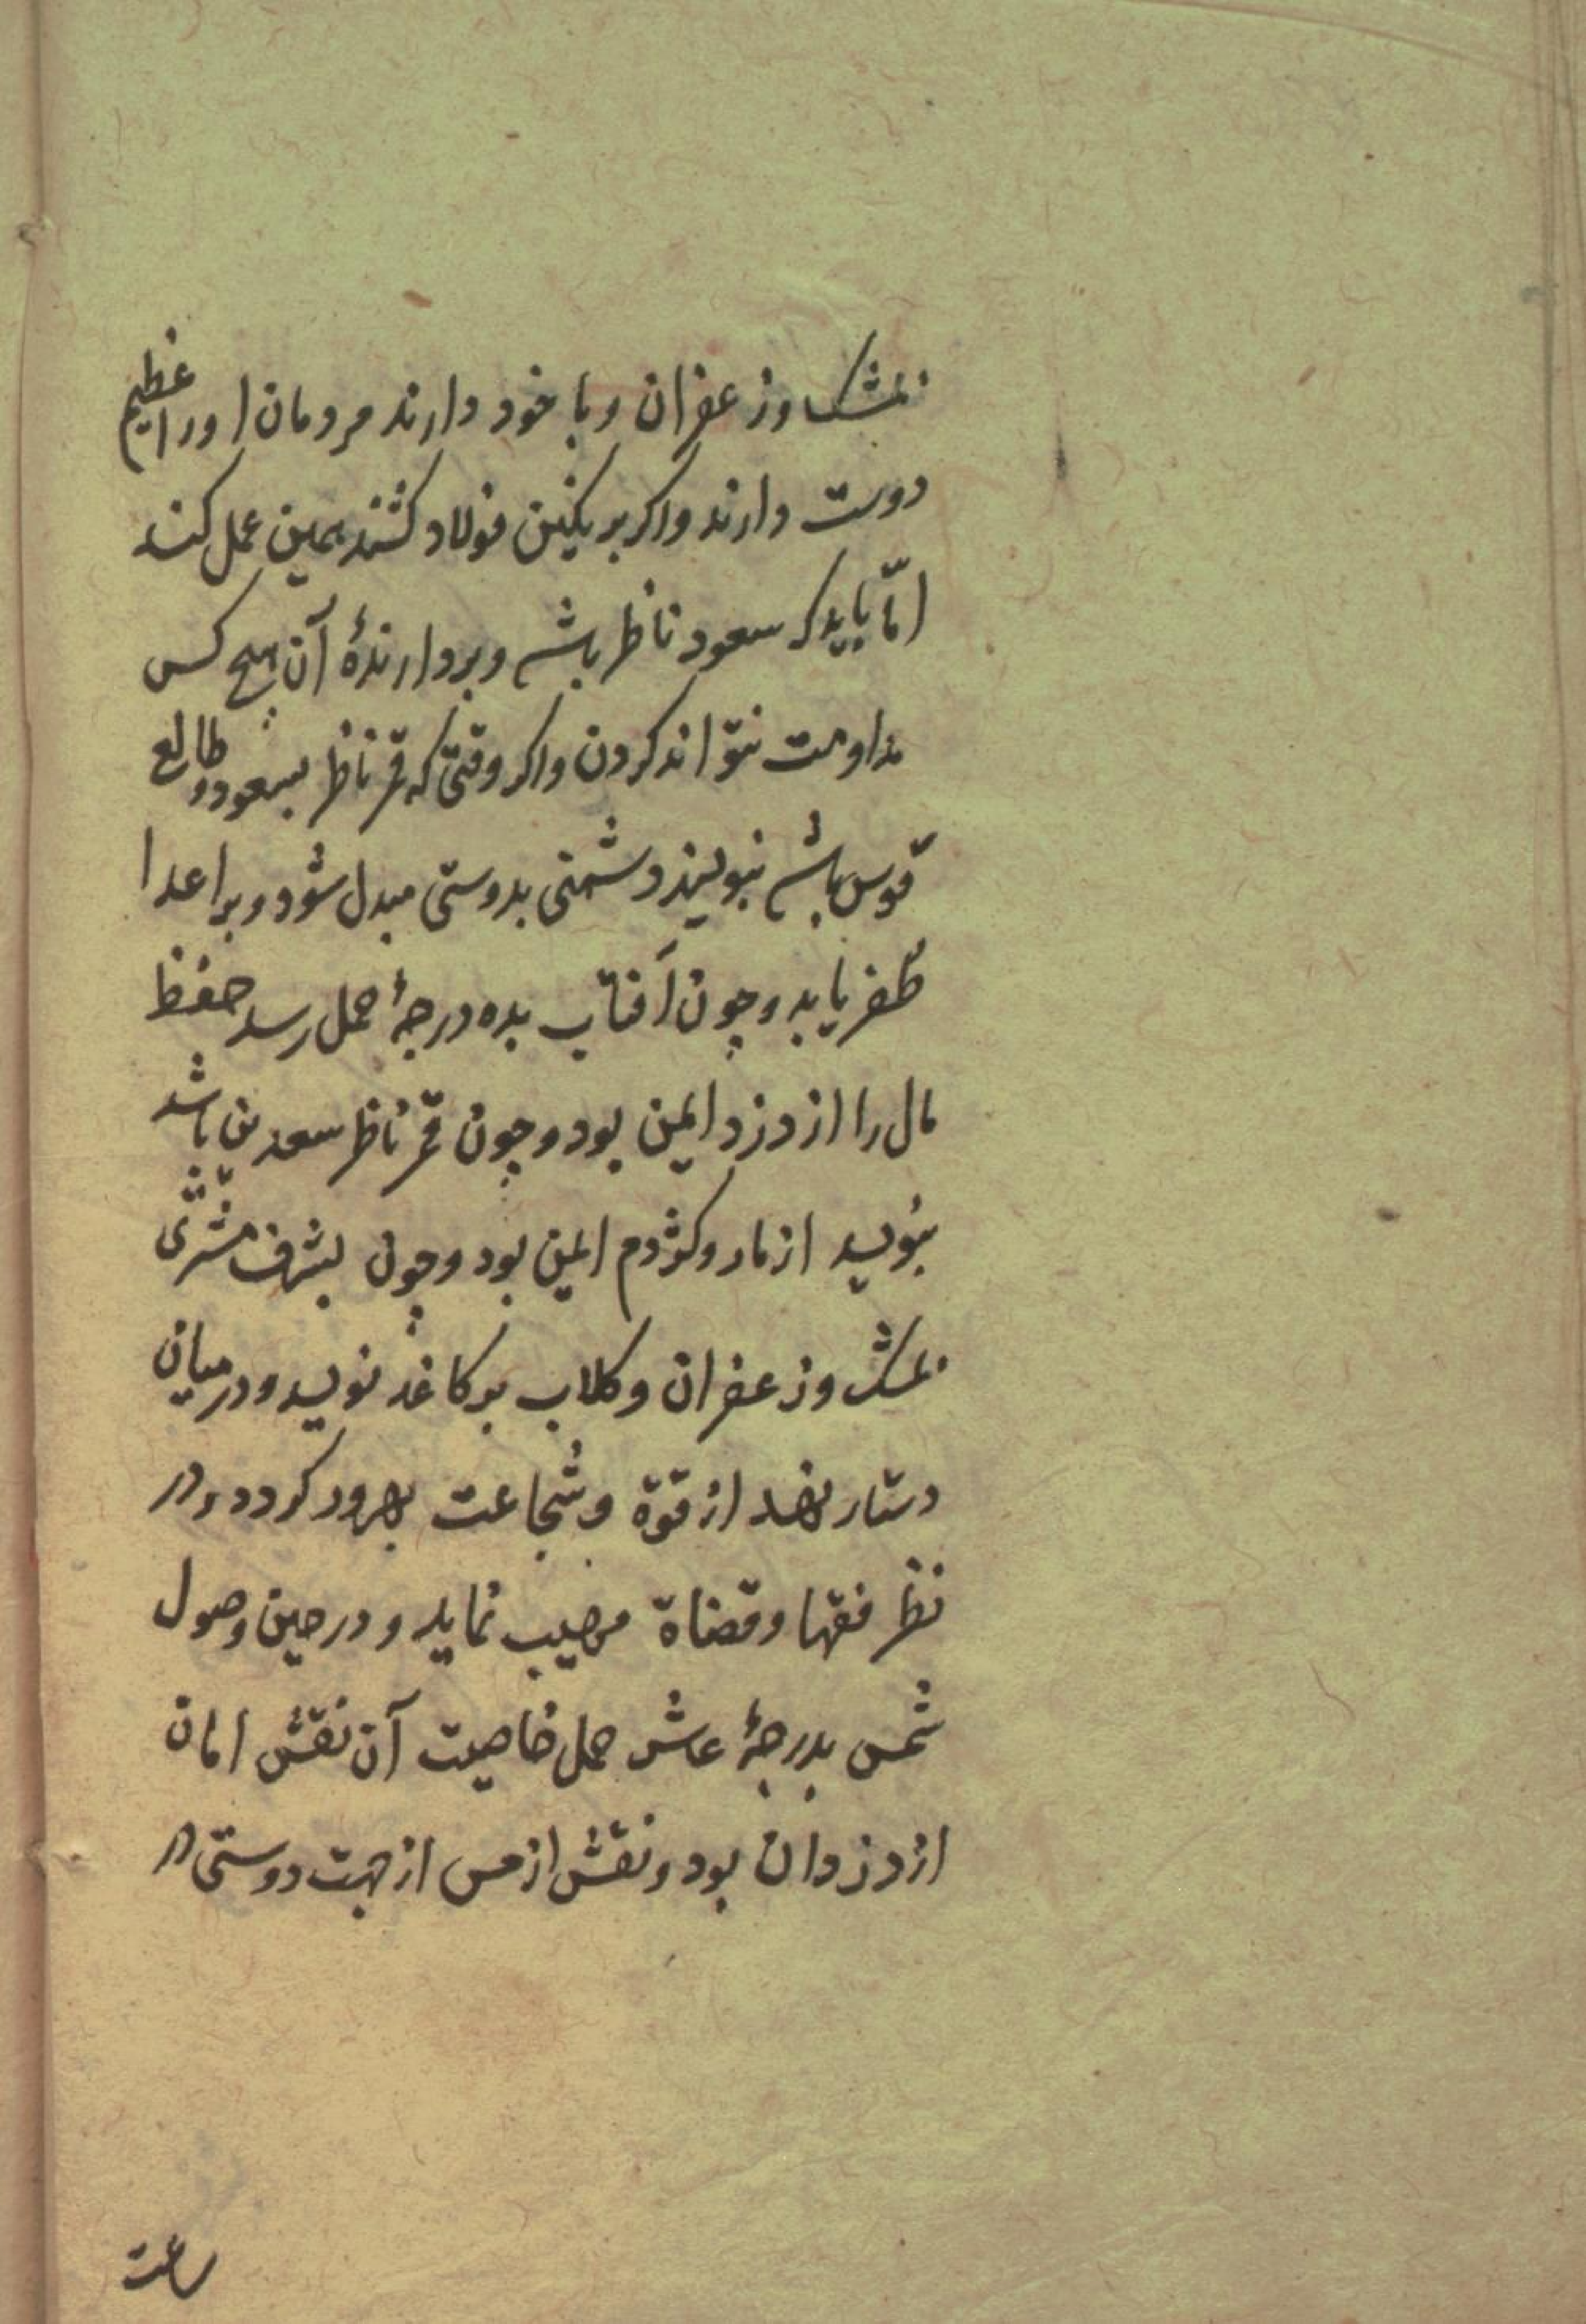 بمشک وزعفران وبا خود دارند مردمان اورا عظیم
دوست دارند واکر بر نکین فولاد کنند همین عمل کند
امّا باید که سعود ناظر باشد وبردارندهٔ آن هیچ کس
مداومت نتواند کردن واکر وقتی که قمر ناظر بسعود وطالع
قوس باشد بنویسند دشمنی بدوستی مبدل شود وبر اعدا
ظفر یابد وچون آفتاب بده درجهٔ حمل رسد حفظ
مال را از دزد ایمن بود وچون قمر ناظر سعدین باشد
بنویسد از مار وکژدم ایمن بود وچون بشرف مشتری
بمشک وزعفران وکلاب بر کاغذ نویسد ودر میان
دستار نهد از قوة وشجاعت بهرور کردد ودر
نظر فقها وقضاة مهیب نماید ودر حین وصول
شمس بدرجهٔ عاشر حمل خاصیت آن نقش امان
از دزدان بود ونقش از مس از جهت دوستی در
ساعت